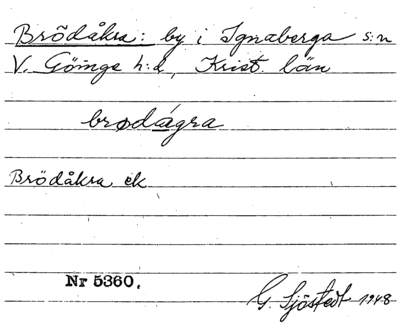 Brödåkra: by i Ignaberga s:n
V. Göinge h:d, Krist. län
brødágra
Brödåkra ek
Nr 5360.
G. Sjöstedt 1948